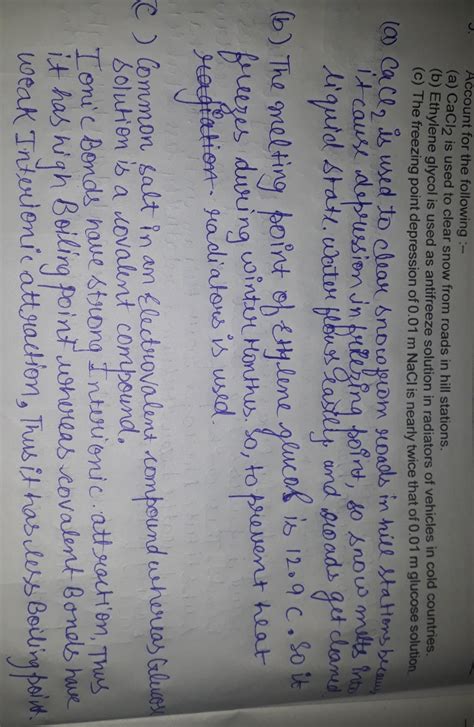 Account for the following :–
(a) CaCl2 is used to clear snow from roads in hill stations.
(b) Ethylene glycol is used as antifreeze solution in radiators of vehicles in cold countries.
(c) The freezing point depression of 0.01 m NaCl is nearly twice that of 0.01 m glucose solution.
(a) CaCl2 is used to clear snow from roads in hill stations because
it cause depression in freezing point, so snow melts into
liquid state. water flows easily and roads get cleared
(b) The melting point of Ethylene glucol is 12.9 C. So it
freezes during winter Months. So, to prevent heat
radiators is used.
(C) Common salt in an Electrovalent compound whereas Glucose
solution is a covalent compound.
Ionic Bonds have strong Interionic attraction, Thus
it has high Boiling point whereas covalent Bonds have
weak Interionic attraction, Thus it has less Boiling point.